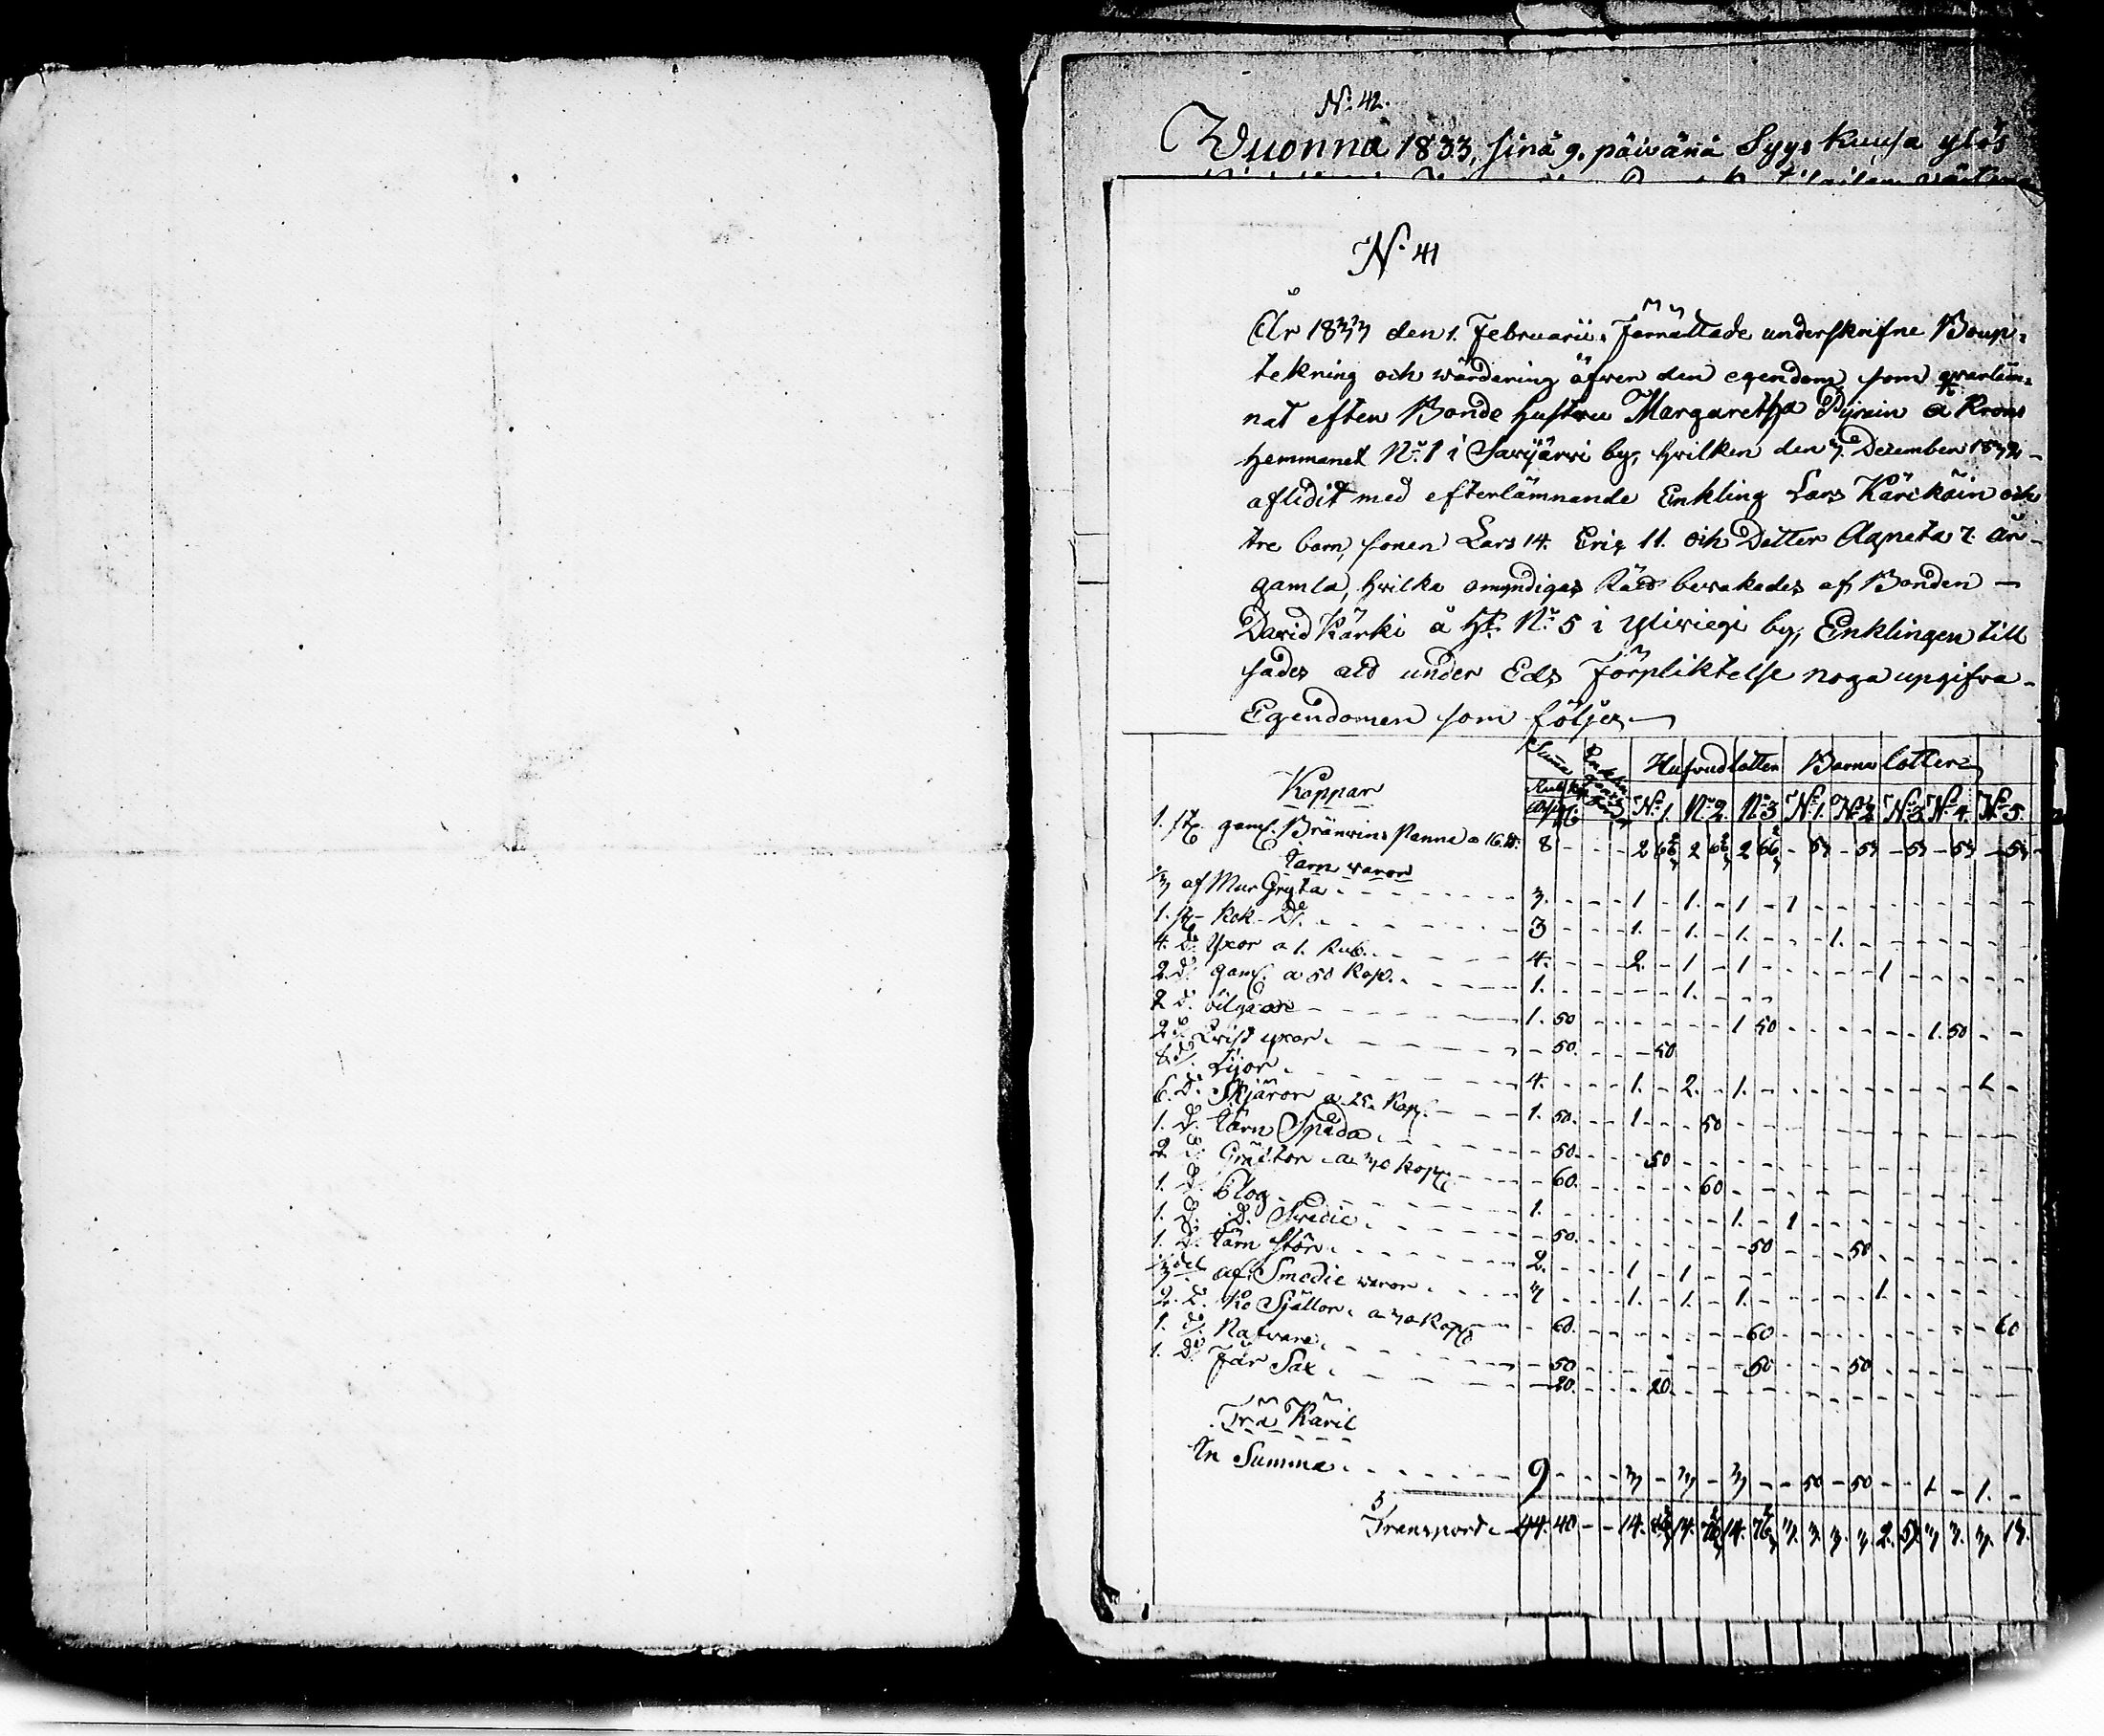 N:o 42.
Wuonna 1833, sinä 9. päivänä Syys kuusa ylös
N:o 41
År 1833 den 1. Februarii Förrättade underskrifne Boup=
tekning och wärdering öfver den egendom som qvarläm=
nat efter Bonde hustru Margaretha Pyrein å Krono
hemmanet N:o 1 i Sawijärwi by, hvilken den 3. December 1832
aflidit med efterlämnande Enkling Lars Kärckäin och
tre barn, sonen Lars 14. Eric 11. och Dotter Agneta 7. år
gamla, hvilka omyndigas Räts bevakades af Bonden —
David Kärki å Ht. N:o 5 i Yliwiegi by; Enklingen till
sades att under Eds Förpliktelse noga upgifva
Egendomen som följer
Summa Hufvudlotten Barna lotter
Koppar Rub. Kop. N:o 1. N:o 2 N:o 3 N:o 1. N:o 2 N:o 3 N:o 4. N:o 5.
1. st. gaml. Bränvins Panna a 16 8 - - - 2 66⅔ 2 66⅔ 2 66⅔ - 53 - 53 - 53 - 53 - 53
Järn varor
⅓ af Mur Gryta 3. - - - 1 - 1. - 1 - 1
1. st. Kok D:o 3 - - - 1. - 1. - 1. - - - 1.
4. D:o Yxor a 1. Rub. 4. - - - 2. - 1 - 1 - - - 1
2. D:o gaml. a 50 Kop. 1. - - - 1.
2 D:o 1. 50 - - - 1 50 - - - 1. 50
2 D:o yxor - 50. - - - 50
8 D:o Lijor 4. - - - 1. - 2. - 1. - - - 1
6. D:o Skjäror a 25. Kop. 1. 50. - - 1 - - - 50
1. D:o Järn Spada - 50. - - - 50
2 D:o a 30 Kop. - 60. - - - 60
1. D:o Plog 1. - - - 1. - 1
1. D:o D:o Svedie - 50. - - - 50 - - - 50
1. D:o Järn stör 2. - - - 1 - 1
⅓ del af Smedie varor 3 - - - 1. - 1. - 1. - - - 1.
2. D:o Ko Själlor a 30 Kop. - 60. - - - 60 - - - 60
1. D:o Nafvare - 50 - - - 50 - - - 50
1. D:o Får Sax - 20. - - - 20.
Trä Käril
In Summa 9 - - - 3 - 3 - 3 - - 50 - 50 - - 1 - 1. -
Transport 44. 40 - - 14. 14. 14. 76⅔ 3. 3. 3. 3. 2. 53 3 3. 3. 13.